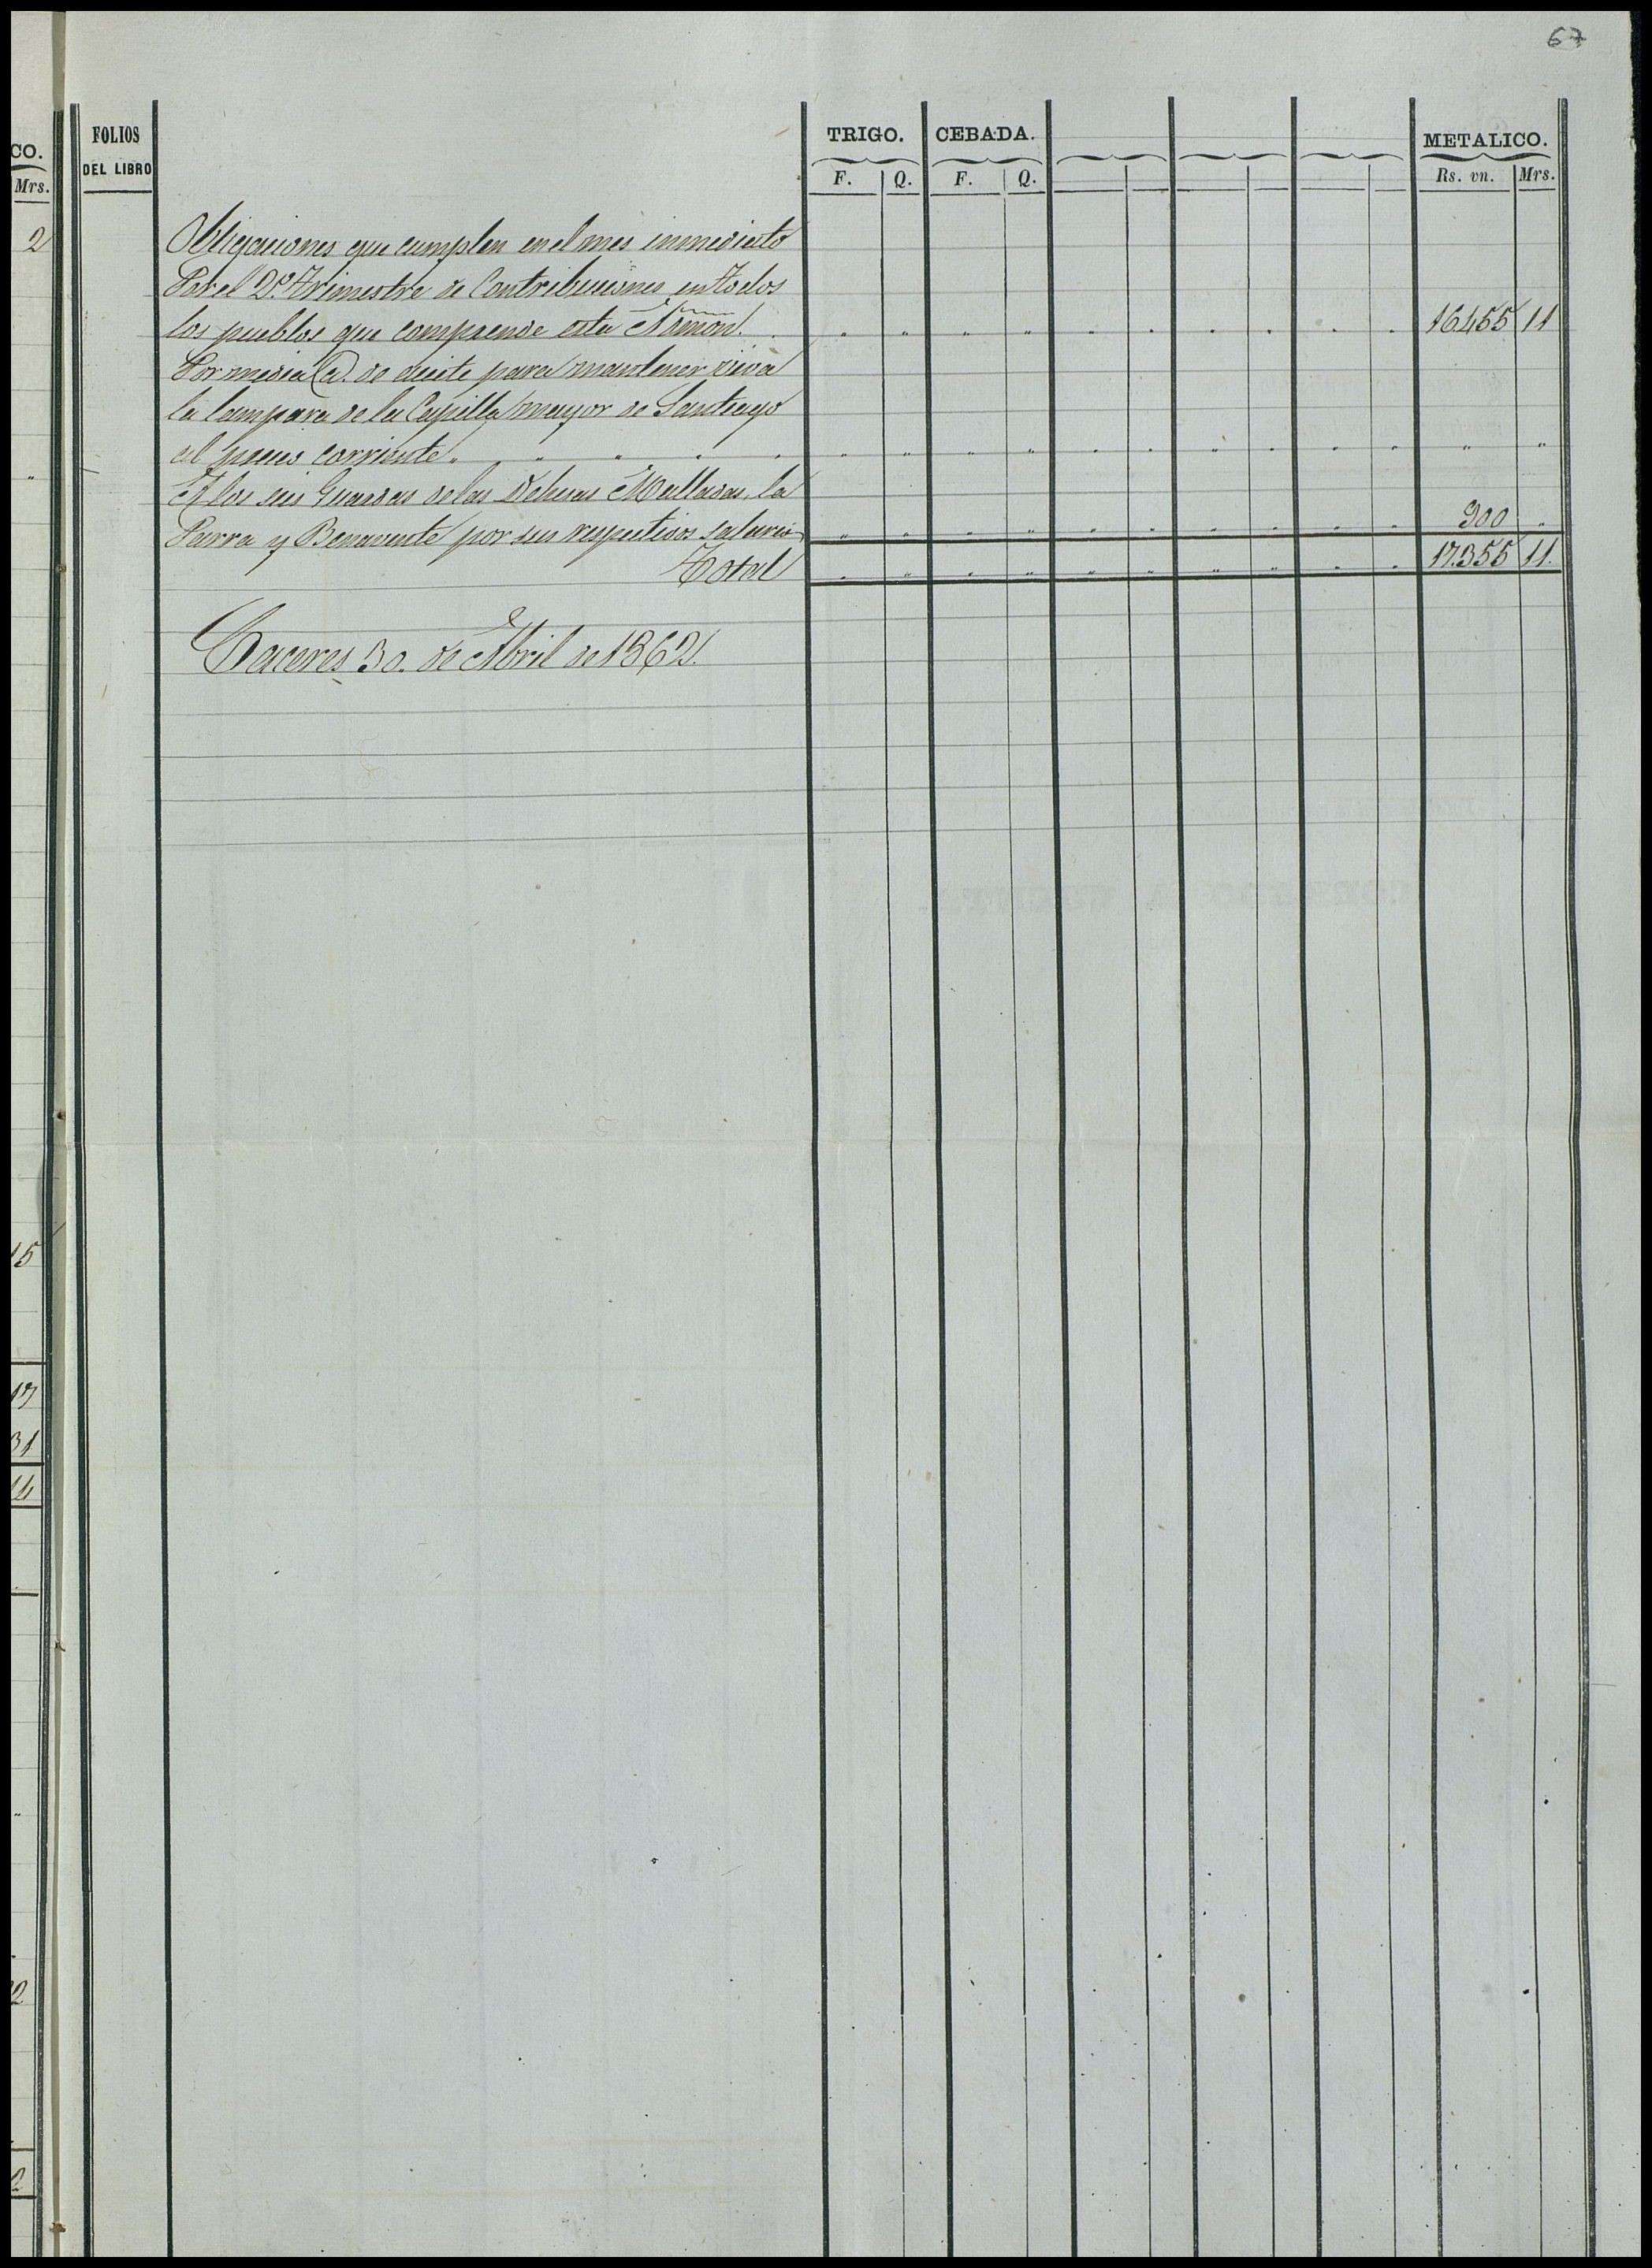 67
CO.
Mrs.
2
15
17
31
14
2
2
FOLIOS
DEL LIBRO
TRIGO. CEBADA. METALICO.
F. Q. F. Q. Rs. vn. Mrs.
Obligaciones que cumplen en el mes inmediato
Por el 2º Trimestre de Contribuciones en todos
los pueblos que comprende esta Admon. 16455 11
Por media @. de aceite para mantener viva
la lampara de la Capilla mayor de Santiago
al precio corriente " " " " "
A los seis Guardas de las Dehesas Malladas, la
Parra y Benavente por sus respectivos salarios 900 "
Total 17.355 11.
Caceres 30. de Abril de 1862.